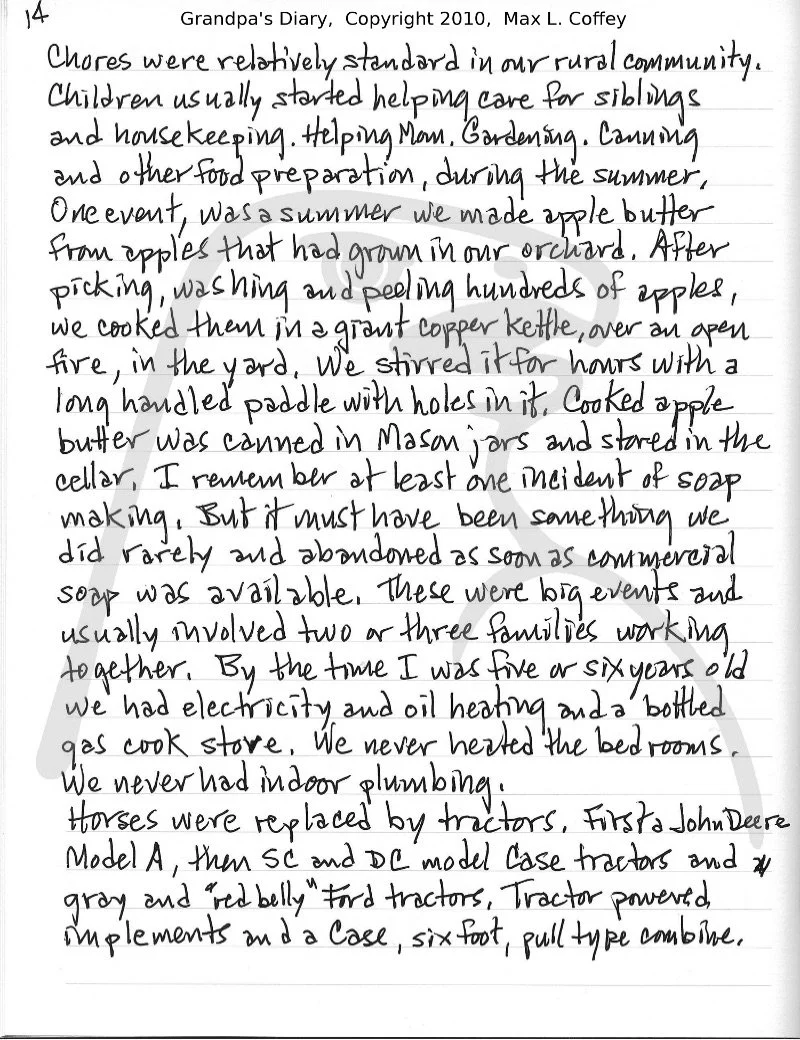 14
Grandpa's Diary, Copyright 2010, Max L. Coffey
Chores were relatively standard in our rural community.
Children usually started helping care for siblings
and housekeeping. Helping Mom. Gardening. Canning
and other food preparation, during the summer.
One event, was a summer we made apple butter
from apples that had grown in our orchard. After
picking, washing and peeling hundreds of apples,
we cooked them in a giant copper kettle, over an open
fire, in the yard. We stirred it for hours with a
long handled paddle with holes in it. Cooked apple
butter was canned in Mason jars and stored in the
cellar. I remember at least one incident of soap
making. But it must have been something we
did rarely and abandoned as soon as commercial
soap was available. These were big events and
usually involved two or three families working
together. By the time I was five or six years old
we had electricity and oil heating and a bottled
gas cook stove. We never heated the bedrooms.
We never had indoor plumbing.
Horses were replaced by tractors. First a John Deere
Model A, then SC and DC model Case tractors and
gray and "red belly" Ford tractors. Tractor powered
implements and a Case, six foot, pull type combine.